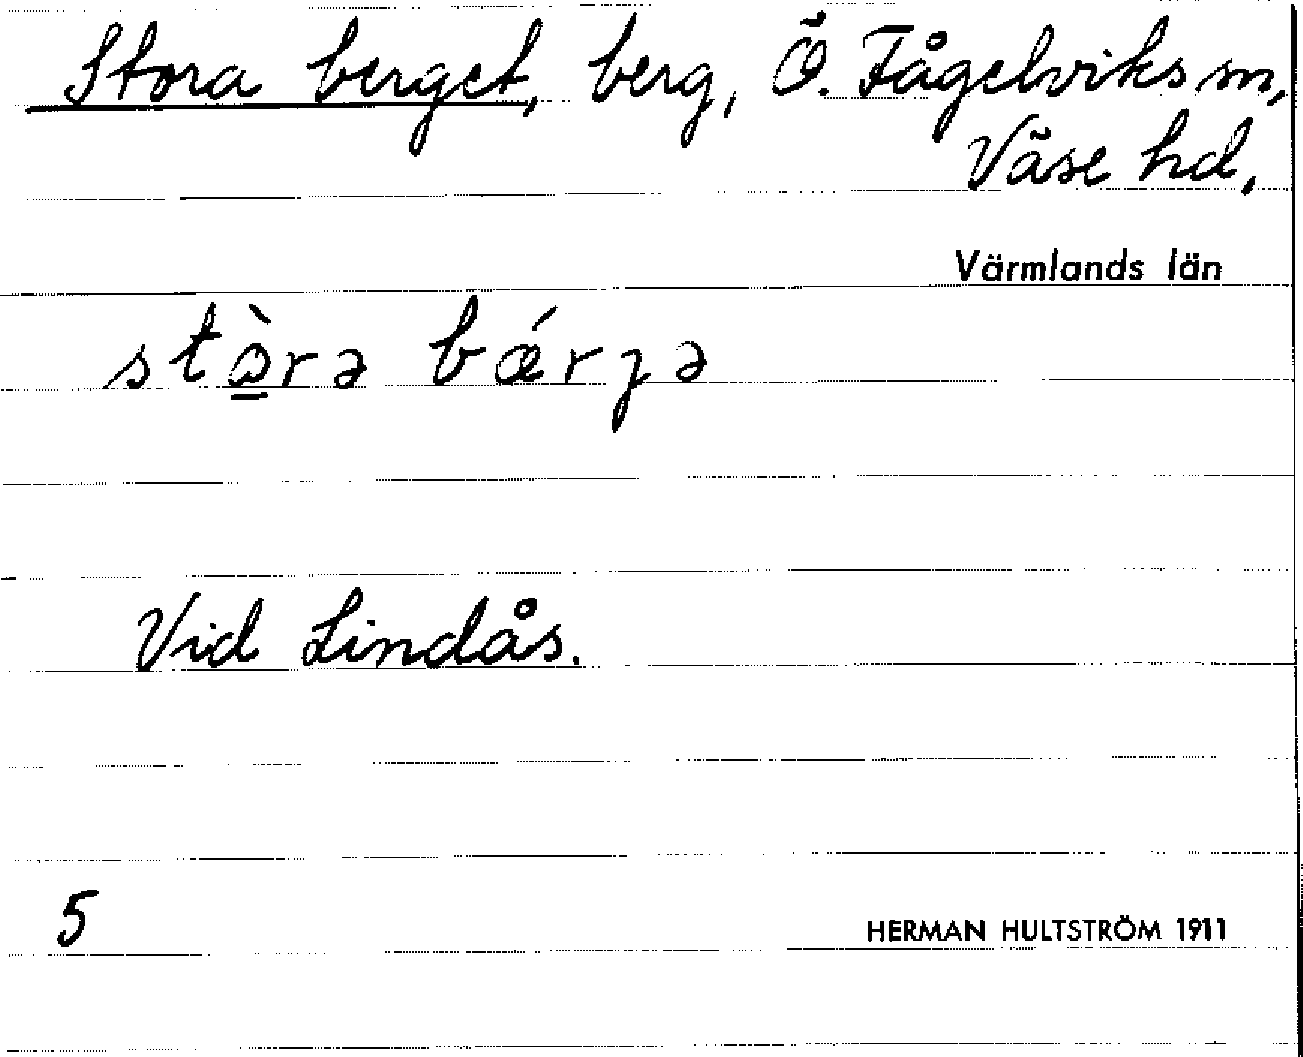 Stora berget, berg, Ö. Fågelviks sn,
Väse hd,
Värmlands län
stɔ̠̀rə bǽrȷə
Vid Lindås.
5
HERMAN HULTSTRÖM 1911